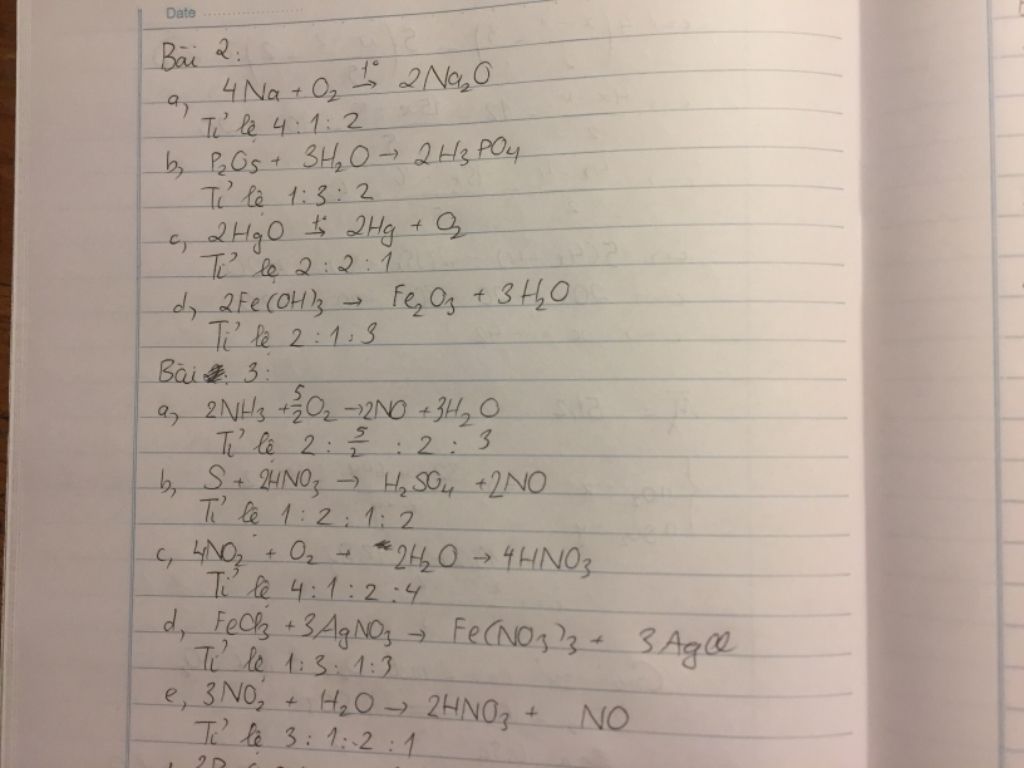 Date
Bài 2:
a, 4Na + O₂ →(t°) 2Na₂O
Tỉ lệ 4 : 1 : 2
b, P₂O₅ + 3H₂O → 2H₃PO₄
Tỉ lệ 1 : 3 : 2
c, 2HgO →(t°) 2Hg + O₂
Tỉ lệ 2 : 2 : 1
d, 2Fe(OH)₃ → Fe₂O₃ + 3H₂O
Tỉ lệ 2 : 1 : 3
Bài 3:
a, 2NH₃ + 5/2 O₂ → 2NO + 3H₂O
Tỉ lệ 2 : 5/2 : 2 : 3
b, S + 2HNO₃ → H₂SO₄ + 2NO
Tỉ lệ 1 : 2 : 1 : 2
c, 4NO₂ + O₂ + 2H₂O → 4HNO₃
Tỉ lệ 4 : 1 : 2 : 4
d, FeCl₃ + 3AgNO₃ → Fe(NO₃)₃ + 3AgCl
Tỉ lệ 1 : 3 : 1 : 3
e, 3NO₂ + H₂O → 2HNO₃ + NO
Tỉ lệ 3 : 1 : 2 : 1